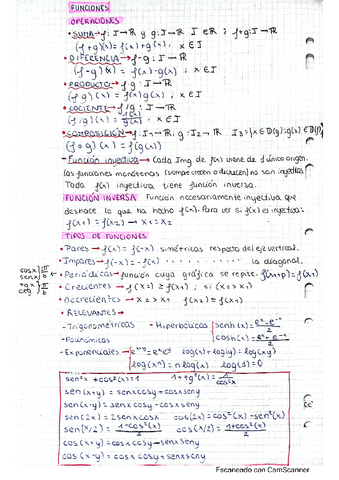 FUNCIONES
OPERACIONES
• SUMA → f: I→ℝ y g: I→ℝ I∈ℝ ; f+g: I→ℝ
(f+g)(x) = f(x)+g(x), x∈I
• DIFERENCIA → f-g: I→ℝ
(f-g)(x) = f(x)-g(x) ; x∈I
• PRODUCTO → f·g: I→ℝ
(f g)(x) = f(x)g(x) ; x∈I
• COCIENTE → f/g: I→ℝ
(f/g)(x) = f(x)/g(x) , x∈I
• COMPOSICIÓN → f: I₁→ℝ; g: I₂→ℝ I₃={x∈D(g):g(x)∈D(f)}
(f∘g)(x) = f(g(x))
- Función inyectiva → Cada Img de f(x) viene de 1 único origen.
Las funciones monótonas (siempre crecen o decrecen) son inyectivas
Toda f(x) inyectiva tiene función inversa.
FUNCIÓN INVERSA Función necesariamente inyectiva que
deshace lo que ha hecho f(x). Para ver si f(x) es inyectiva:
f(x1) = f(x2) → x1 = x2
TIPOS DE FUNCIONES
• Pares → f(x) = f(-x) simétricas respecto del eje vertical.
• Impares → -f(x) = f(-x) la diagonal.
• Periódicas → función cuya gráfica se repite. f(x+p) = f(x)
cosx
senx
tgx
• Crecientes → f(x2) ≥ f(x1) ; si (x2 > x1)
• Decrecientes → x2 > x1 f(x2) ≤ f(x1)
• RELEVANTES →
- Trigonométricas - Hiperbólicas senh(x) = (eˣ-e⁻ˣ)/2
- Polinómicas cosh(x) = (eˣ+e⁻ˣ)/2
- Exponenciales → e^(x+y) = eˣeʸ log(x)+log(y) = log(xy)
log(xⁿ) = n log(x) log(1) = 0
sen²x + cos²x = 1 1+tg²(x) = 1/cos²x
sen(x+y) = senx cosy + cosx seny
sen(x-y) = senx cosy - cosx seny
sen(2x) = 2senx cosx cos(2x) = cos²(x) - sen²(x)
cos(x+y) = cosx cosy - senx seny
cos(x-y) = cosx cosy + senx seny
Escaneado con CamScanner